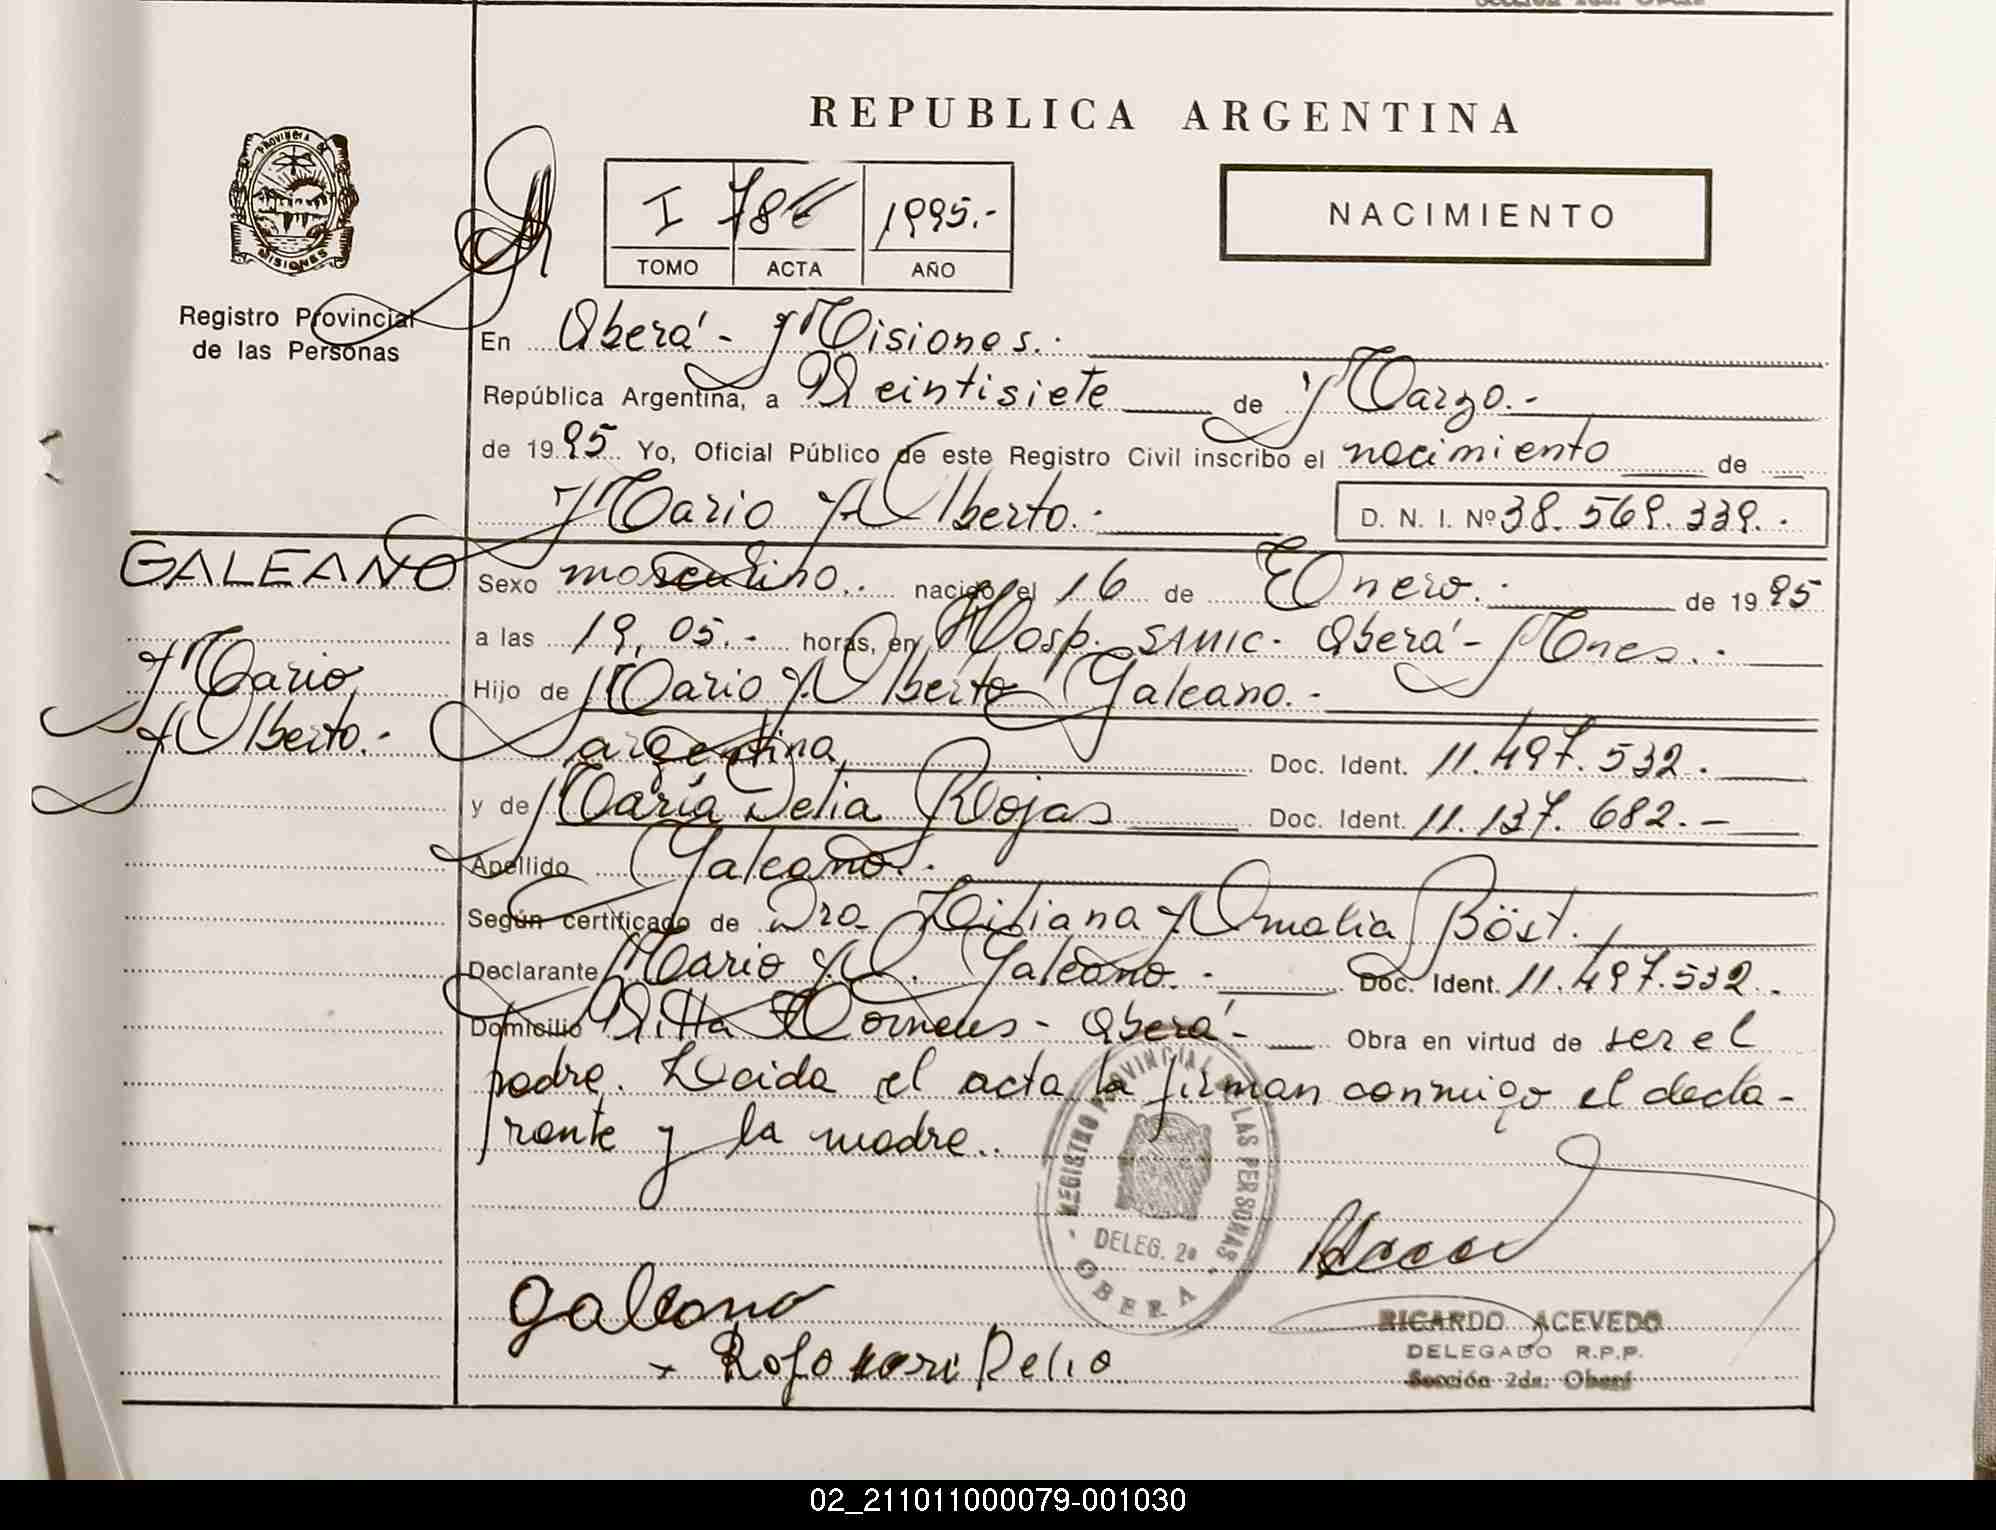 REPUBLICA ARGENTINA
PROVINCIA DE MISIONES
I 786 1995.-
TOMO ACTA AÑO
NACIMIENTO
Registro Provincial
de las Personas
En Oberá - Misiones.-
República Argentina, a Veintisiete de Marzo.-
de 1995 Yo, Oficial Público de este Registro Civil inscribo el nacimiento de
Mario Alberto.- D. N. I. Nº 38.569.339.-
GALEANO
Mario
Alberto.-
Sexo masculino.. nacido el 16 de Enero.- de 1995
a las 19,05.- horas, en Hosp. SAMIC. Oberá - Mnes.-
Hijo de Mario Alberto Galeano.-
argentina Doc. Ident. 11.497.532.-
y de María Delia Rojas Doc. Ident. 11.137.682.-
Apellido Galeano.-
Según certificado de Dra. Liliana Amalia Böst.
Declarante Mario A. Galeano.- Doc. Ident. 11.497.532.
Domicilio Villa Oberá - Obra en virtud de ser el
padre. Leida el acta la firman conmigo el decla-
rante y la madre..
REGISTRO PROVINCIAL DE LAS PERSONAS
DELEG. 2ª
OBERA
Galeano
Delia
RICARDO ACEVEDO
DELEGADO R.P.P.
Sección 2da. Oberá
02_211011000079-001030